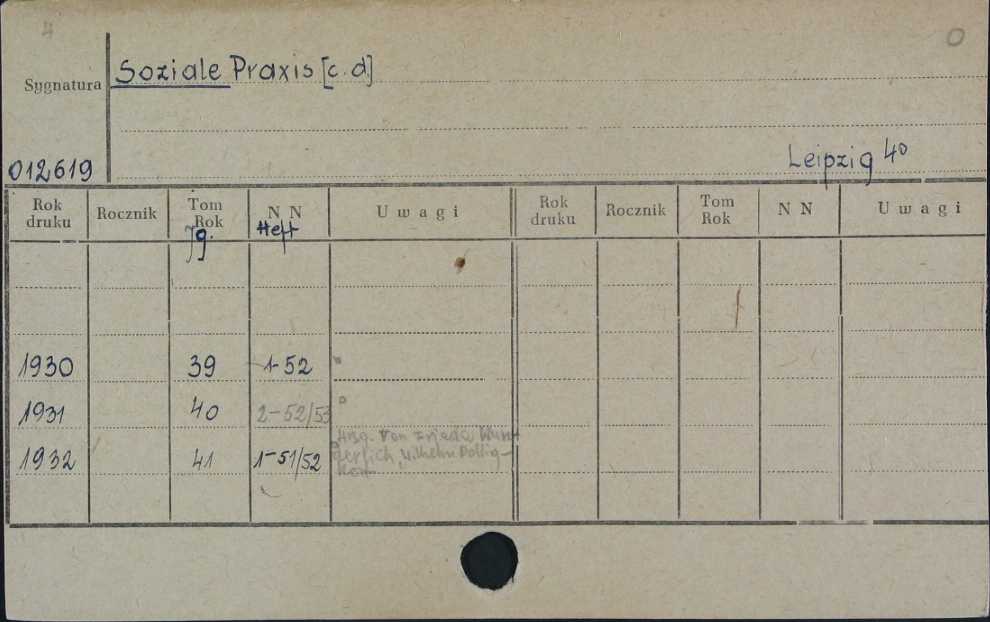 4 O
Sygnatura Soziale Praxis [c.d.]
012619 Leipzig 4°
Rok druku Rocznik Tom Rok N N Uwagi Rok druku Rocznik Tom Rok N N Uwagi
Jg. Heft
1930 39 1-52
1931 40 2-52/53
1932 41 1-51/52 Hrsg. von Frieda Wun-
derlich, Wilhelm Pollig-
keit